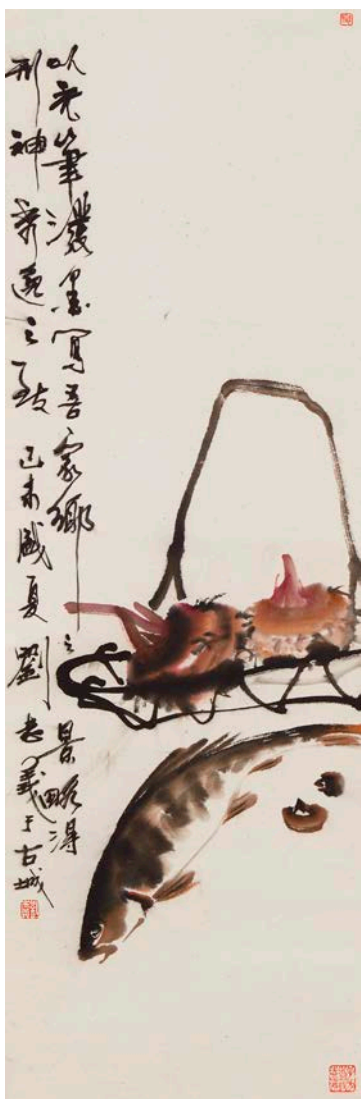 以禿筆潑墨寫吾家鄉之景略得
形神逸之致 己未盛夏 劉義于古城